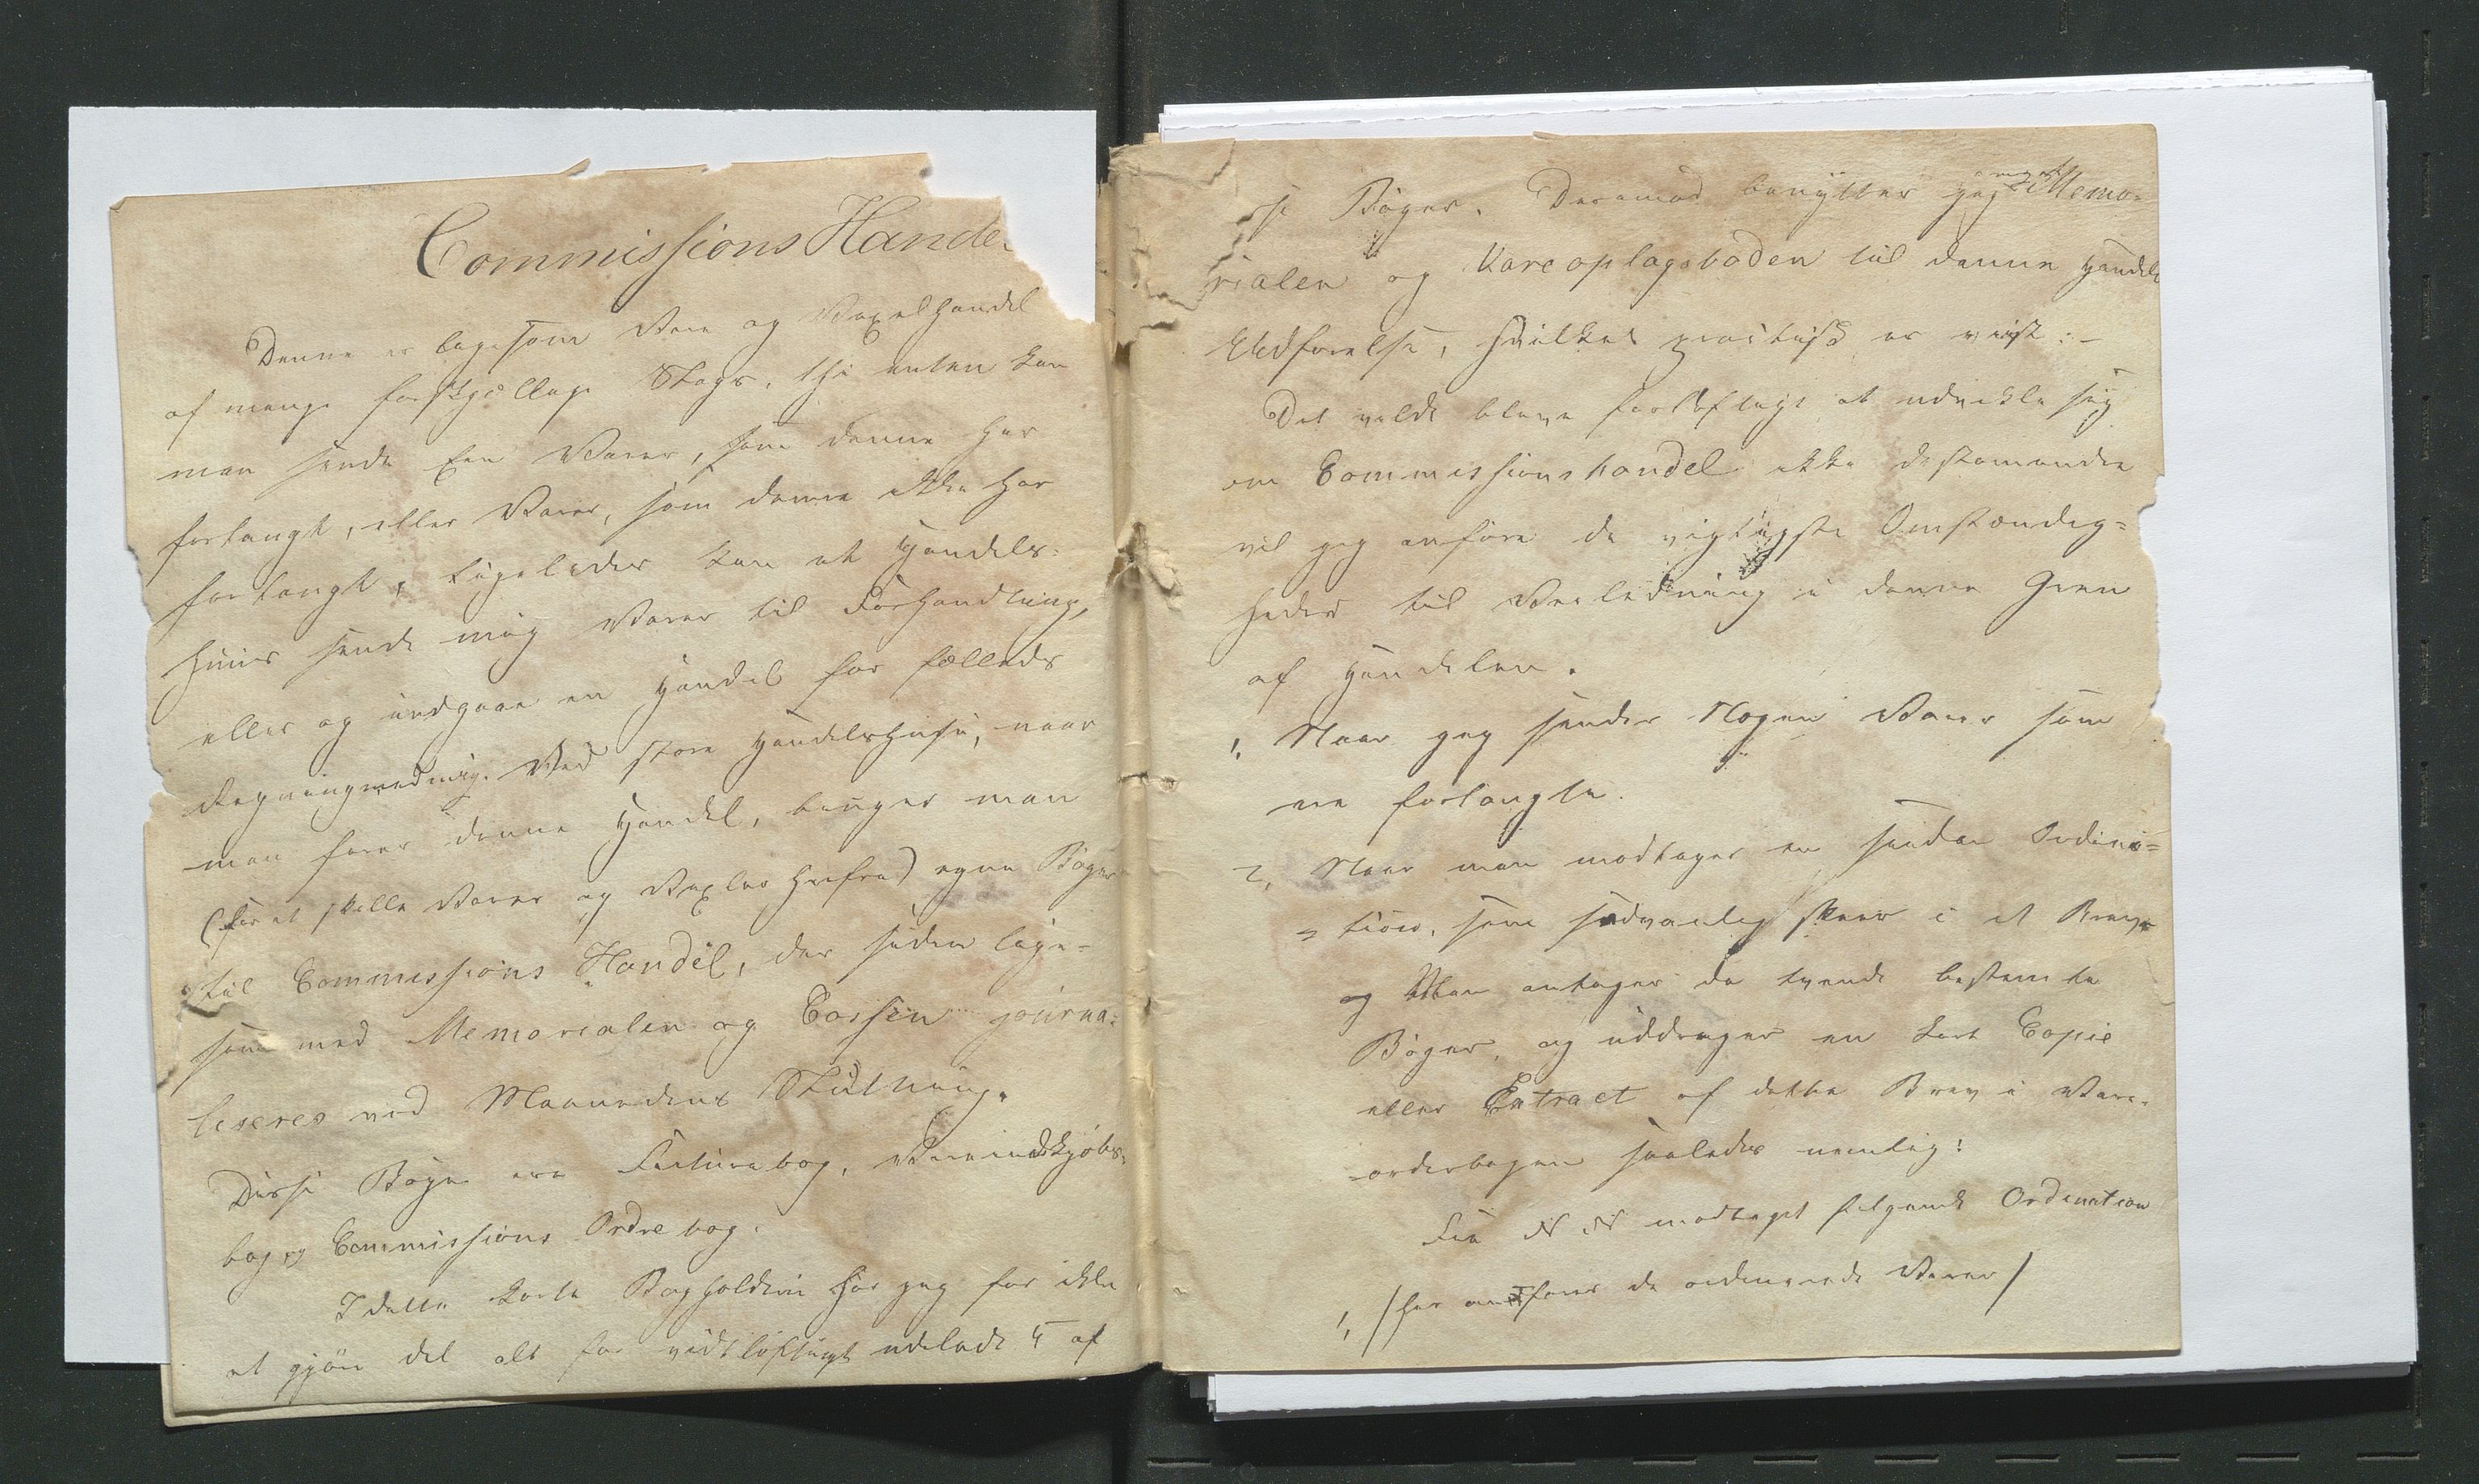 Commissions Hande
Denne er ligesom Vare og Vexelhandel
af mange forskjellige Slags, thi enten kan
man sende Een Varer, som denne har
forlangt, eller Varer, som denne ikke har
forlangt, ligeledes kan et Handels-
huus sende mig Varer til Forhandling,
eller og indgaae en Handel for fælleds
Regning med mig. Ved store Handelshuse, naar
man fører denne Handel, bruger man
(for at skille Varer og Vexler herfra) egne Bøger
til Commissions Handel, der siden lige-
som med Memorialen og Cassen journa-
liseres ved Maanedens Slutning.
Disse Bøger ere Facturabog, Vareindkjøbs-
bog og Commissions Ordrebog.
I dette korte Bogholderi har jeg for ikke
at gjøre det alt for vidtløftigt udeladt 4 af
se Bøger. Deremod benytter jeg Memo-
rialen og Vareoplagsboden til denne Handels
Udførelse, hvilket practisk er viist:-
Det vilde blive at udvikle sig
om Commissionshandel ikke destomindre
vil jeg anføre de vigtigste Omstændig-
heder til Veiledning i denne Green
af Handelen.
1, Naar jeg sender Nogen Varer som
ere forlangte.
2, Naar man modtager en saadan Ordina-
tion, som sædvanlig skeer i et Brev,
og Man antager de tvende bestemte
Bøger, og uddrager en kort Copie
eller Extract af dette Brev i Vare-
ordrebogen saaledes nemlig:
Fra N N modtaget følgende Ordination
1, /her anføres de ordinerede Varer/